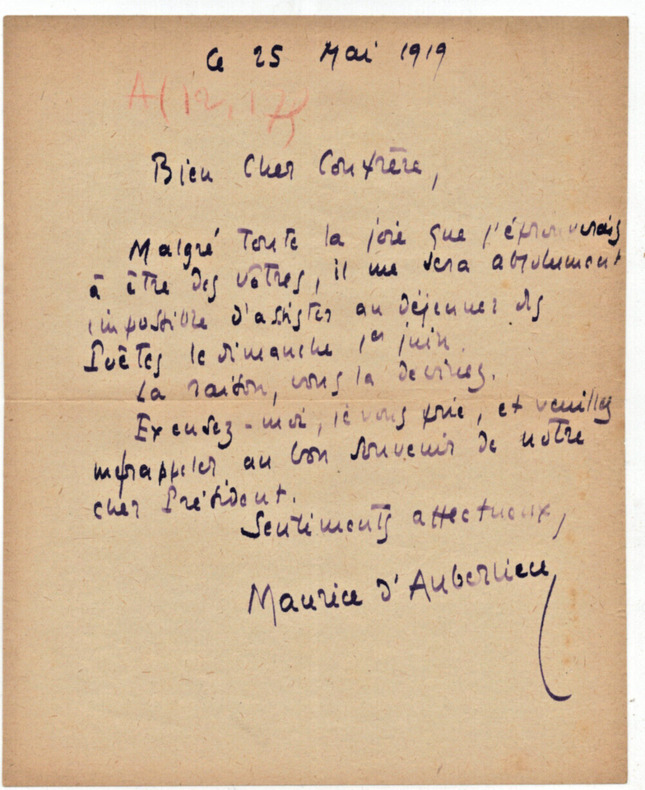 Ce 25 Mai 1919
A(12,17)
Bien Cher Confrère,
Malgré toute la joie que j'éprouverais
à être des vôtres, il me sera absolument
impossible d'assister au déjeuner des
Poètes le dimanche 1er juin.
La raison, vous la devinez.
Excusez-moi, je vous prie, et veuillez
me rappeler au bon souvenir de notre
cher Président.
Sentiments affectueux,
Maurice d'Auberlieu